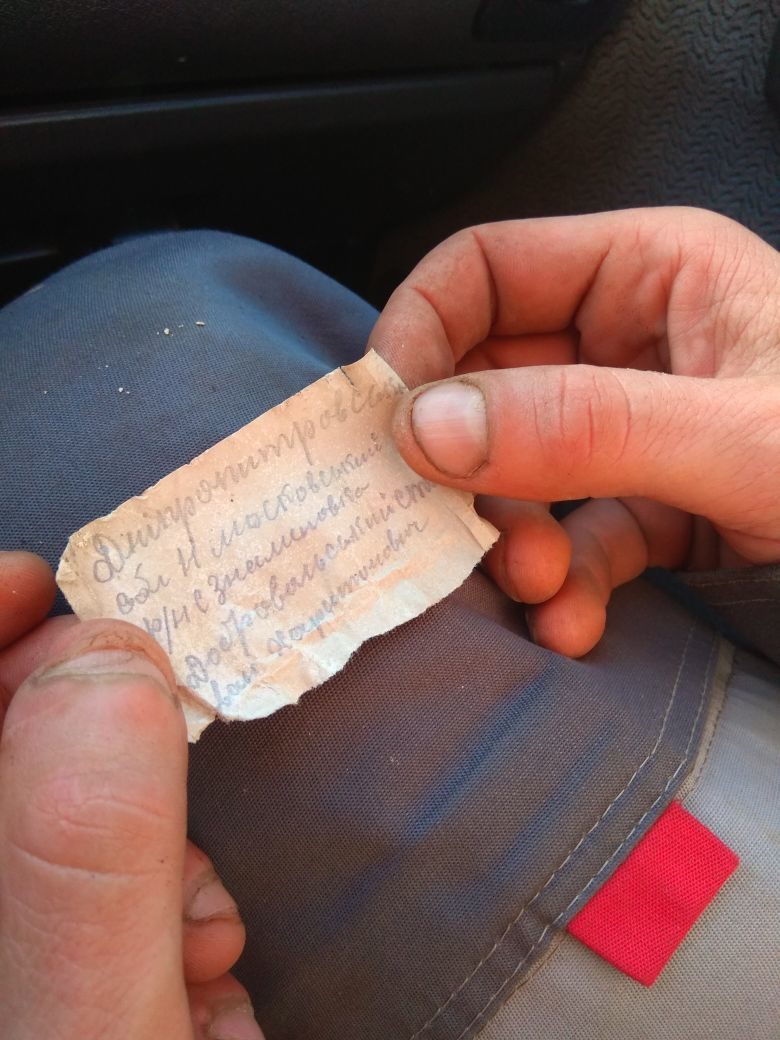 Дніропитровська
обл Н московський
р/н с Знаминовка
Добровольський Сте
ван Харитонович